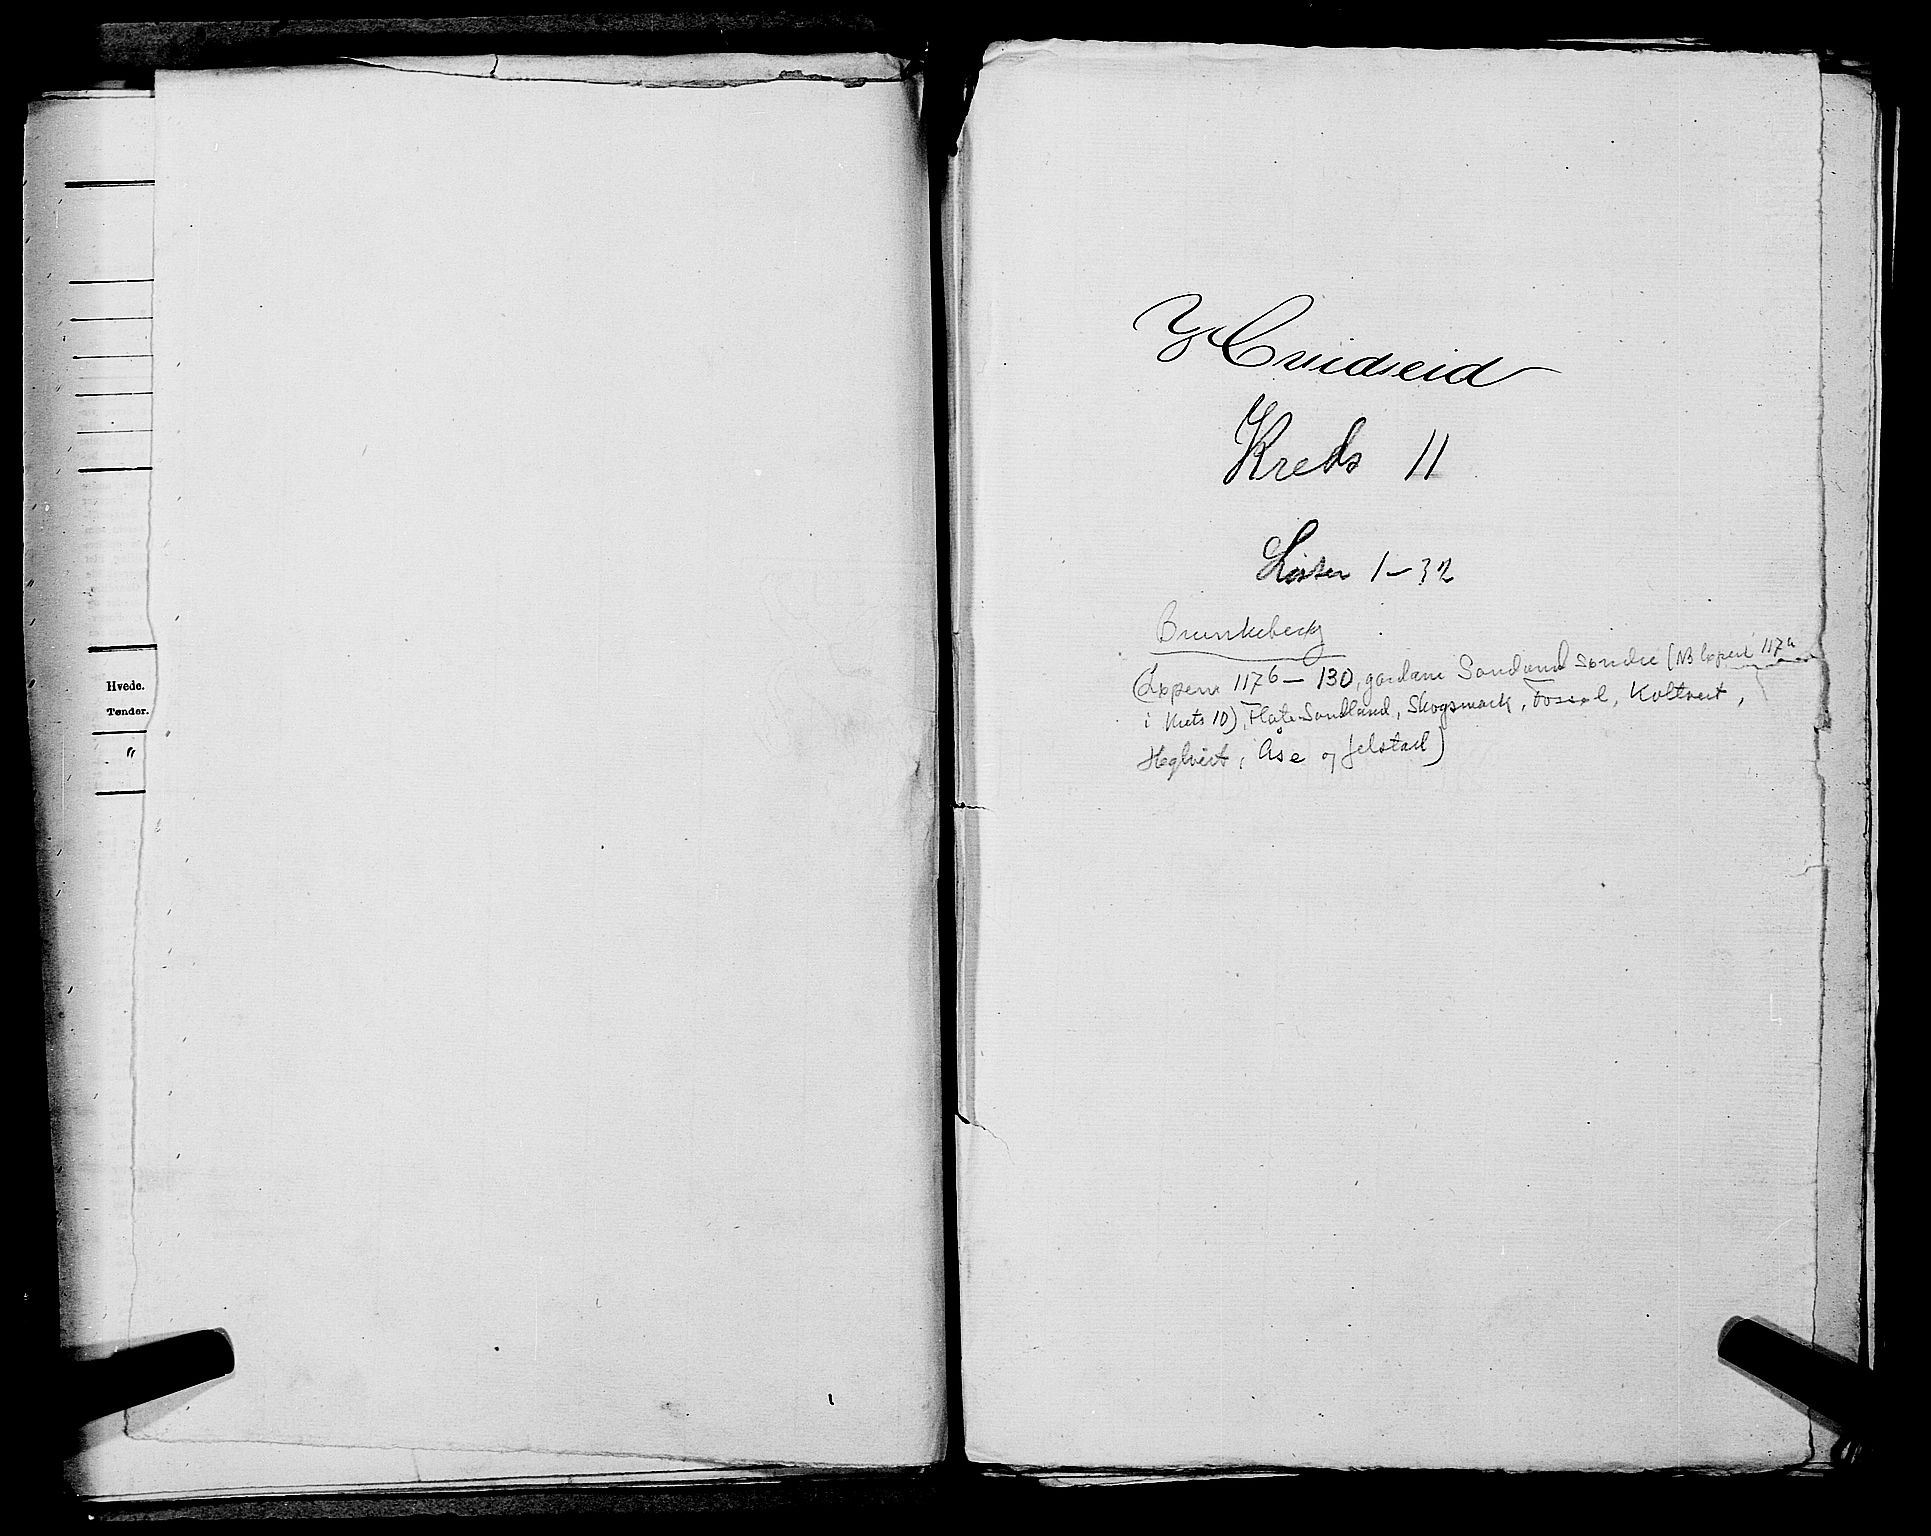 Hvede.
Tønder.
"
Hvideseid
Kreds 11
Lister 1–32
Brunkeberg
(Løpenr 117b – 130, gardane Sandland søndre (NB løpenr 117a
i krets 10), Flate Sandland, Skogsmark, Fossel, Koltveit,
Heglveit, Åse og Jelstad)